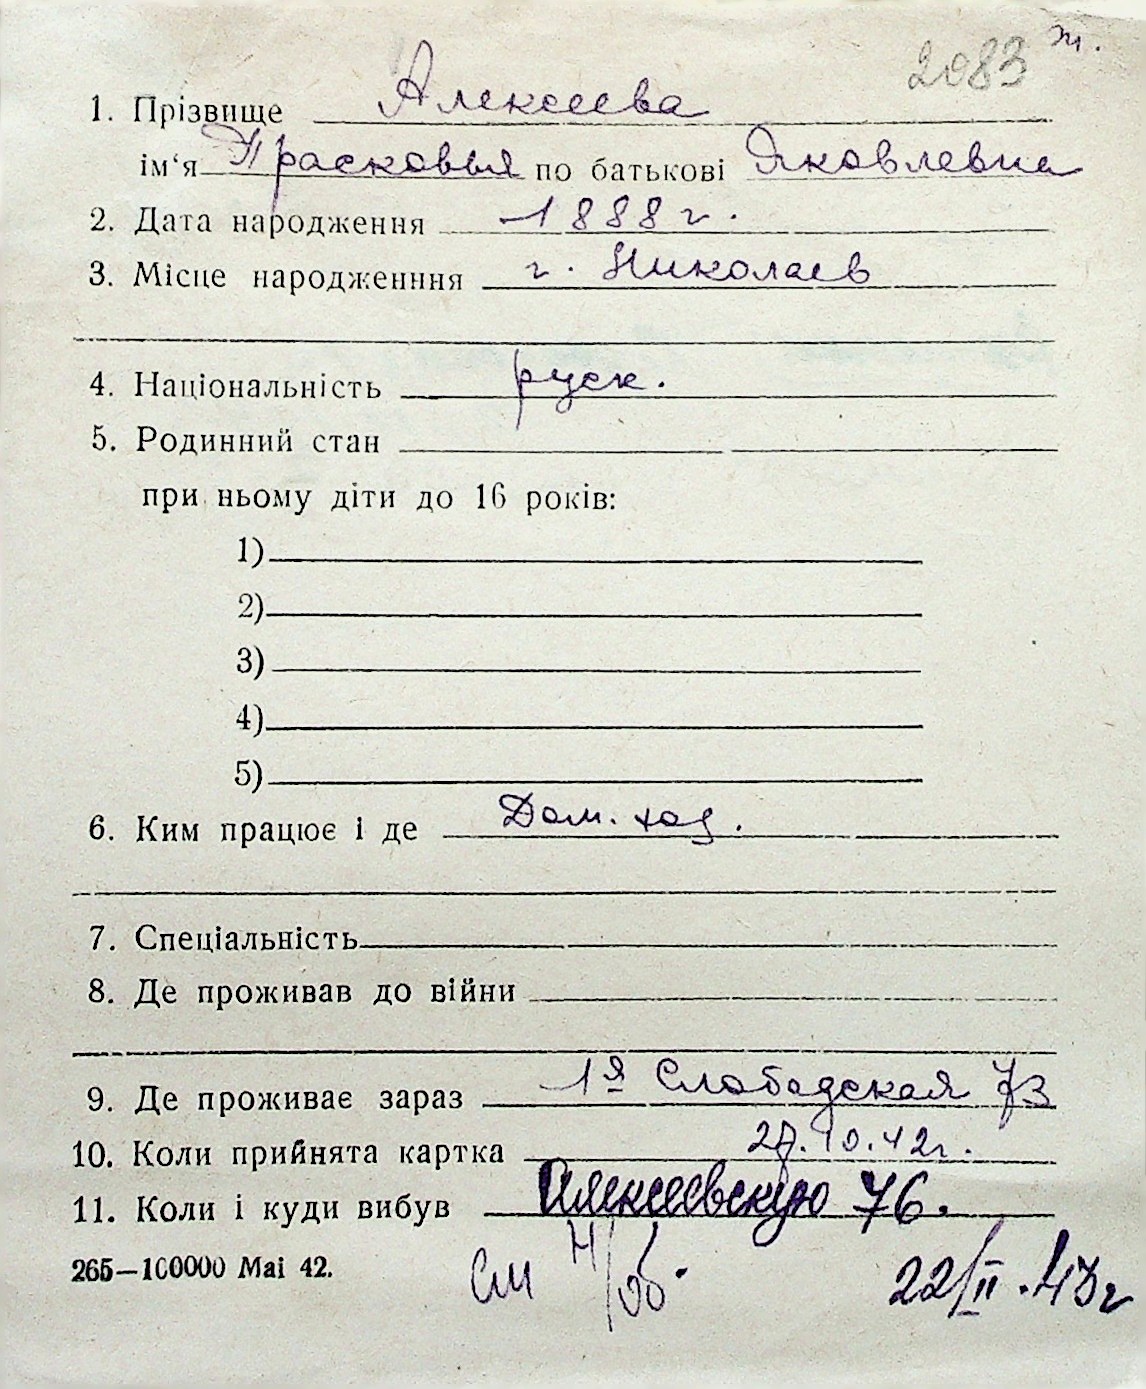 2083 ж.
1. Прізвище Алексеева
ім‘я Прасковья по батькові Яковлевна
2. Дата народження 1888 г.
3. Місце народженння г. Николаев
4. Національність руск.
5. Родинний стан
при ньому діти до 16 років:
1)
2)
3)
4)
5)
6. Ким працює і де Дом. хоз.
7. Спеціальність
8. Де проживав до війни
9. Де проживає зараз 1я Слободская 73
10. Коли прийнята картка 27.10.42г.
11. Коли і куди вибув Алексеевскую 76.
265—100000 Mai 42. см н/об. 22/II.43г